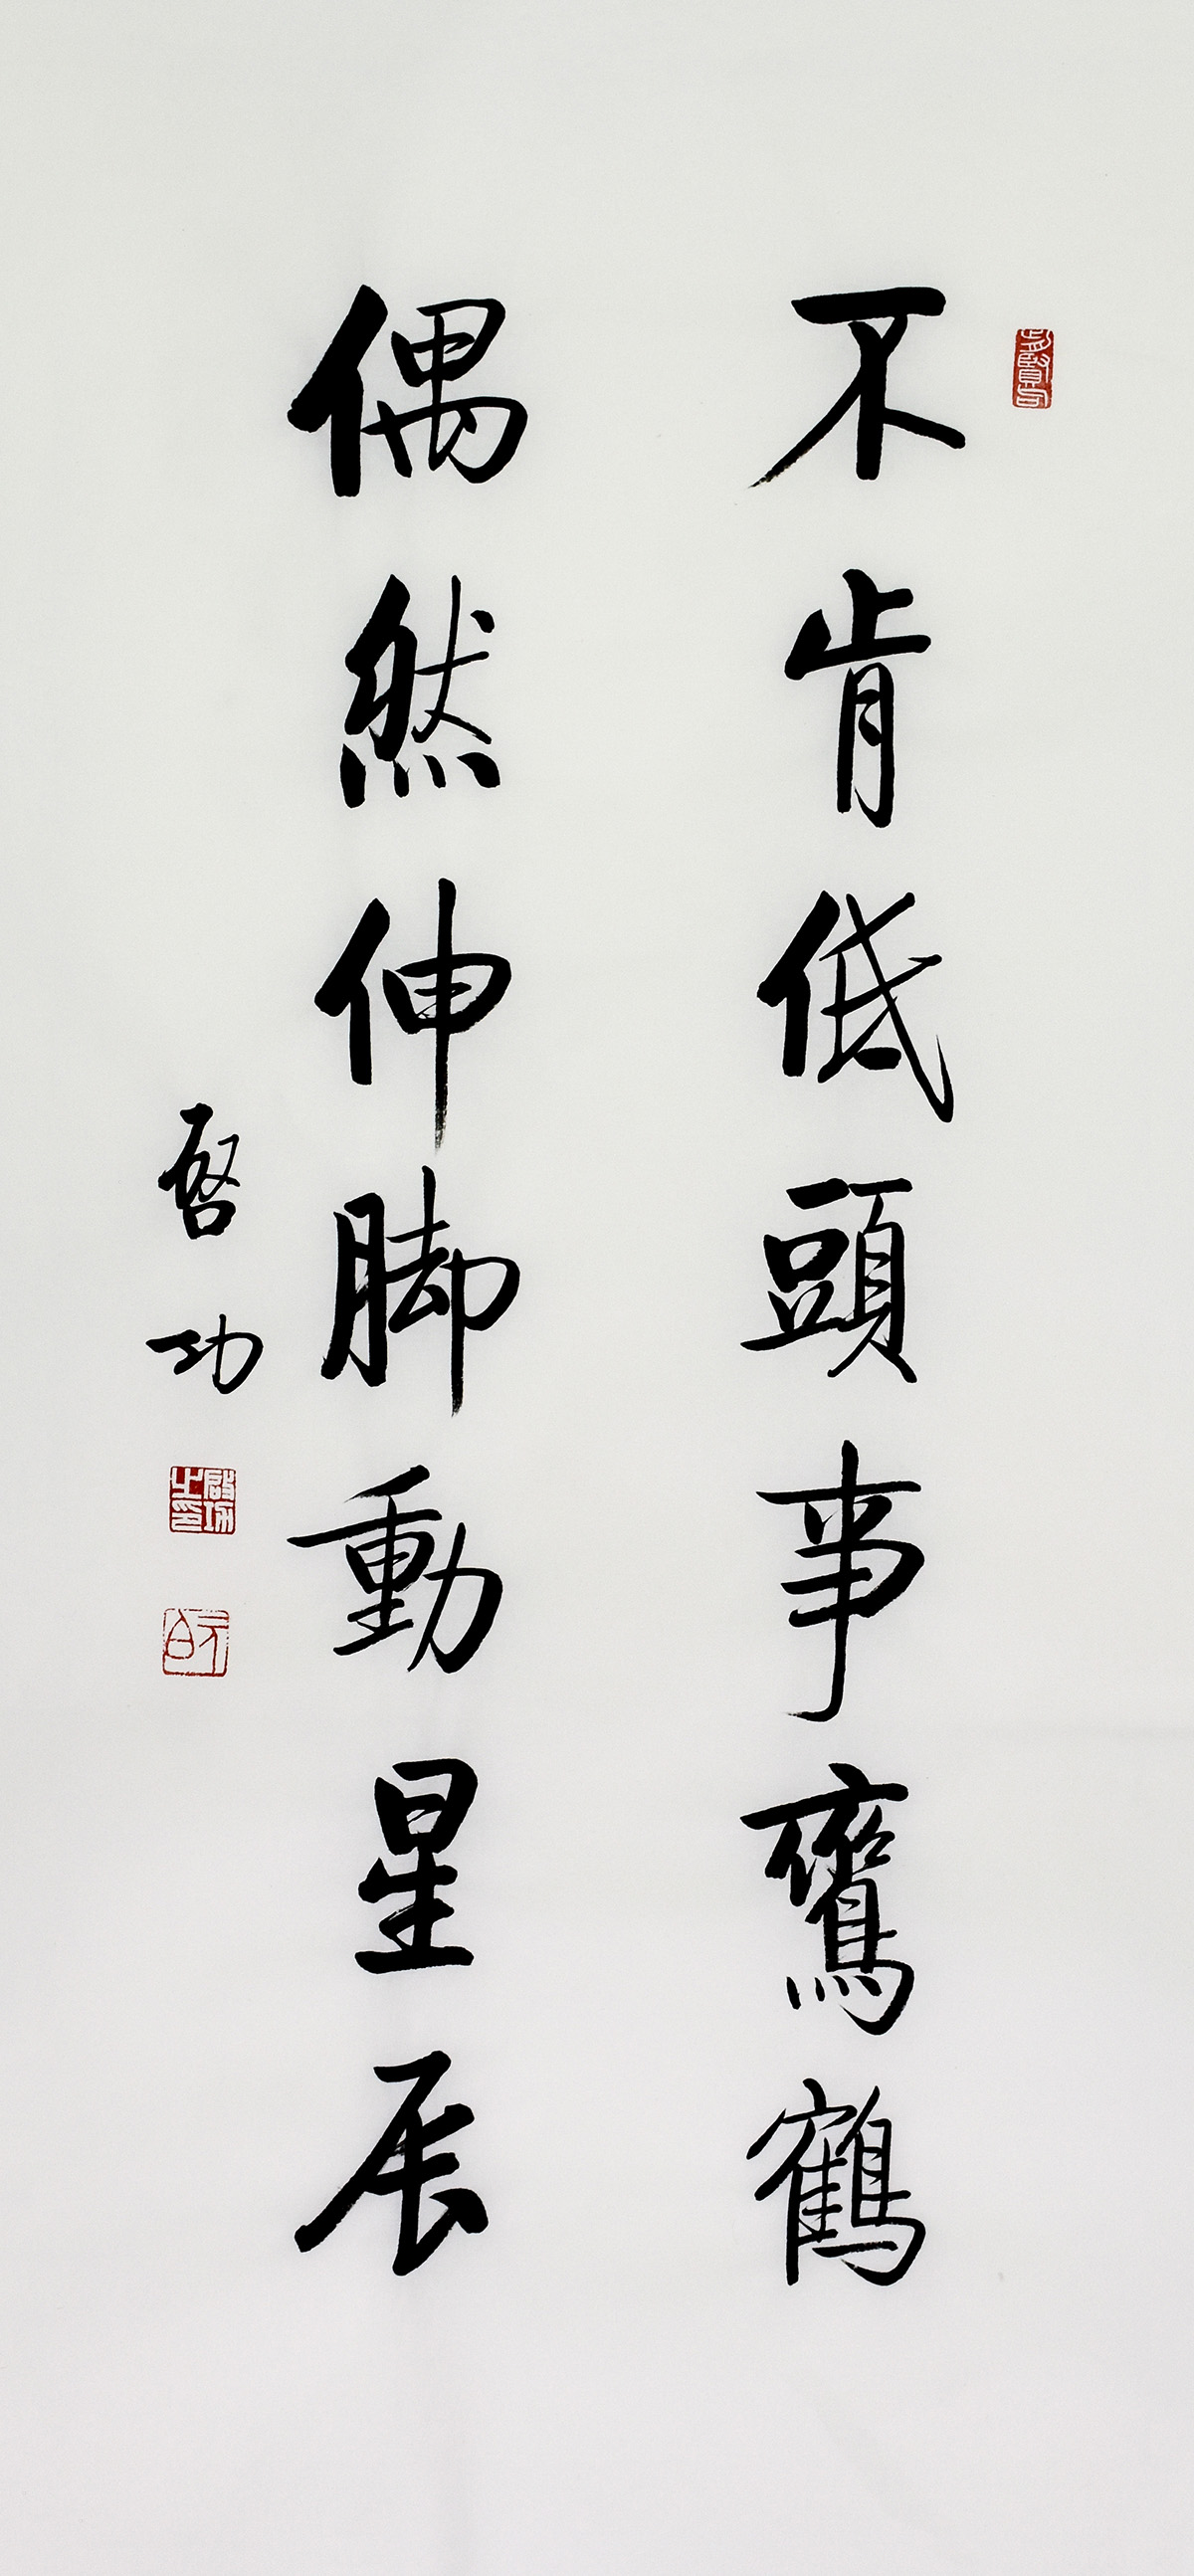 不肯低頭事鸞鶴
偶然伸脚動星辰
啓功
啟功之印
元白